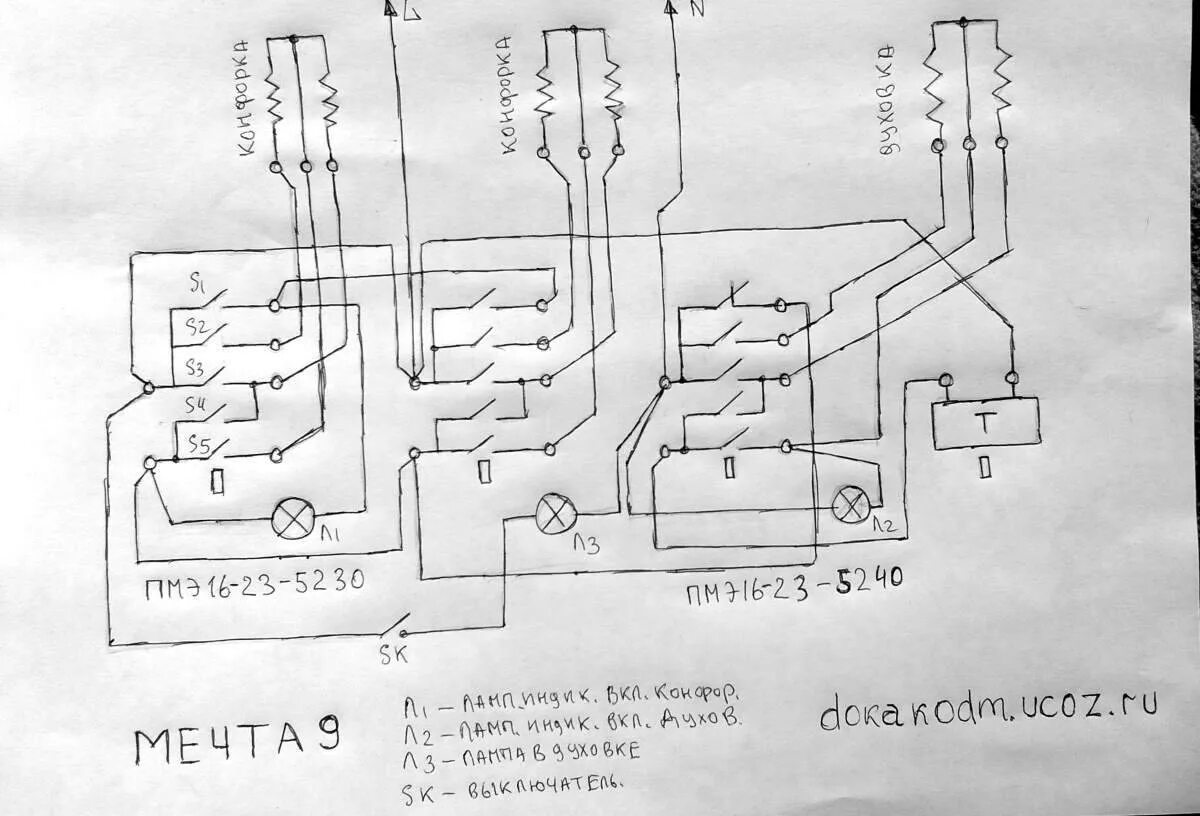 L
N
КОНФОРКА
КОНФОРКА
ДУХОВКА
S1
S2
S3
S4
S5
T
Л1
Л3
Л2
ПМЭ16-23-5230
ПМЭ16-23-5240
SK
МЕЧТА 9
Л1 – ЛАМП. ИНДИК. ВКЛ. КОНФОР.
Л2 – ЛАМП. ИНДИК. ВКЛ. ДУХОВ.
Л3 – ЛАМПА В ДУХОВКЕ
SK – ВЫКЛЮЧАТЕЛЬ.
dokakodm.ucoz.ru